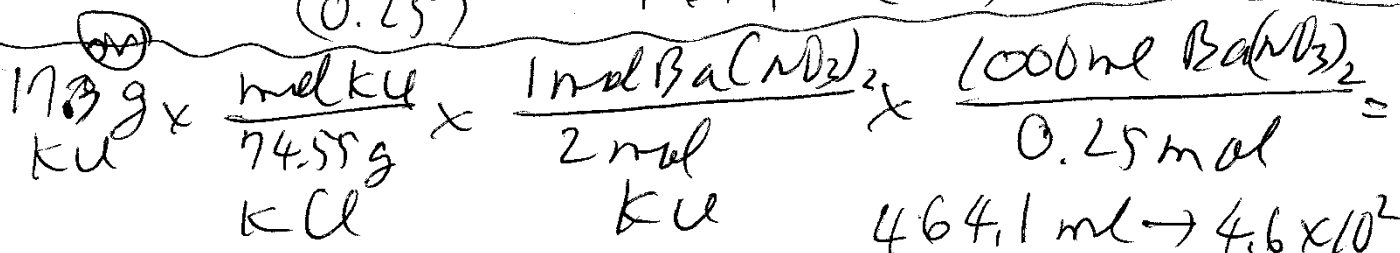 (0.25)
or
17.3 g KCl × mol KCl / 74.55 g KCl × 1 mol Ba(NO3)2 / 2 mol KCl × 1000 ml Ba(NO3)2 / 0.25 mol =
464.1 ml → 4.6 × 10²